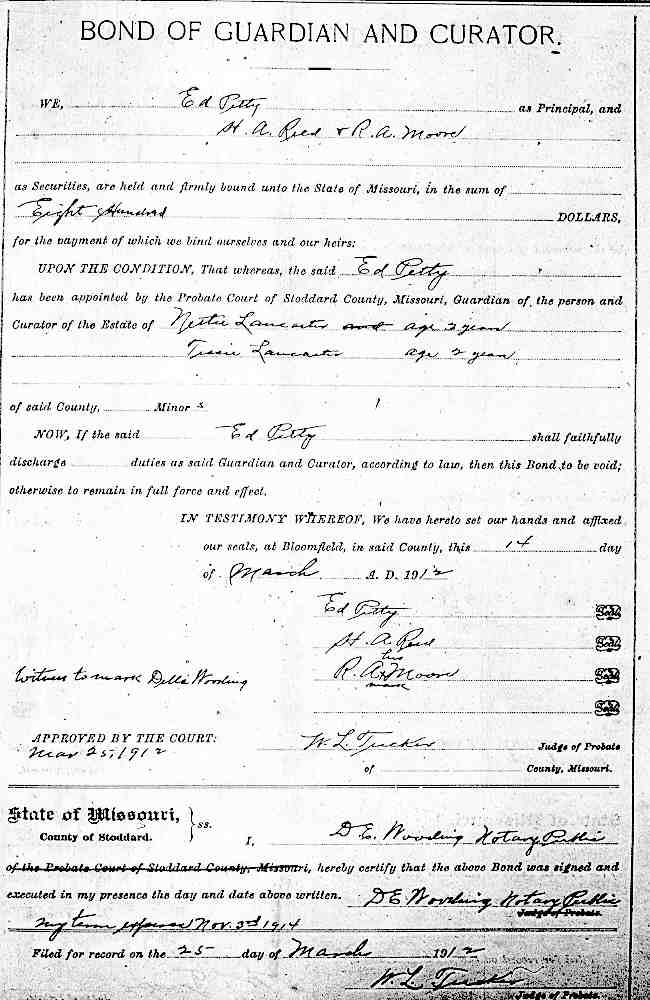 BOND OF GUARDIAN AND CURATOR.
WE, Ed Petty as Principal, and
H. A. Reed & R. A. Moore
as Securities, are held and firmly bound unto the State of Missouri, in the sum of
Eight Hundred DOLLARS,
for the payment of which we bind ourselves and our heirs:
UPON THE CONDITION, That whereas, the said Ed Petty
has been appointed by the Probate Court of Stoddard County, Missouri, Guardian of the person and
Curator of the Estate of Lancaster age year
Lancaster age 2 year
of said County, Minor s
NOW, If the said Ed Petty shall faithfully
discharge duties as said Guardian and Curator, according to law, then this Bond to be void;
otherwise to remain in full force and effect.
IN TESTIMONY WHEREOF, We have hereto set our hands and affixed
our seals, at Bloomfield, in said County, this 14 day
of March A. D. 1912
Ed Petty Seal
H. A. Reed Seal
his
Witness to mark Della Wooding R. A. x Moore Seal
mark
Seal
APPROVED BY THE COURT:
Mar 25, 1912 W. L. Tucker Judge of Probate
of County, Missouri.
State of Missouri, } ss.
County of Stoddard. I, D. E. Wooding Notary Public
of the Probate Court of Stoddard County, Missouri, hereby certify that the above Bond was signed and
executed in my presence the day and date above written. D E Wooding Notary Public
Judge of Probate.
my term expires Nov. 3rd 1914
Filed for record on the 25 day of March 1912
W. L. Tucker
Judge of Probate.